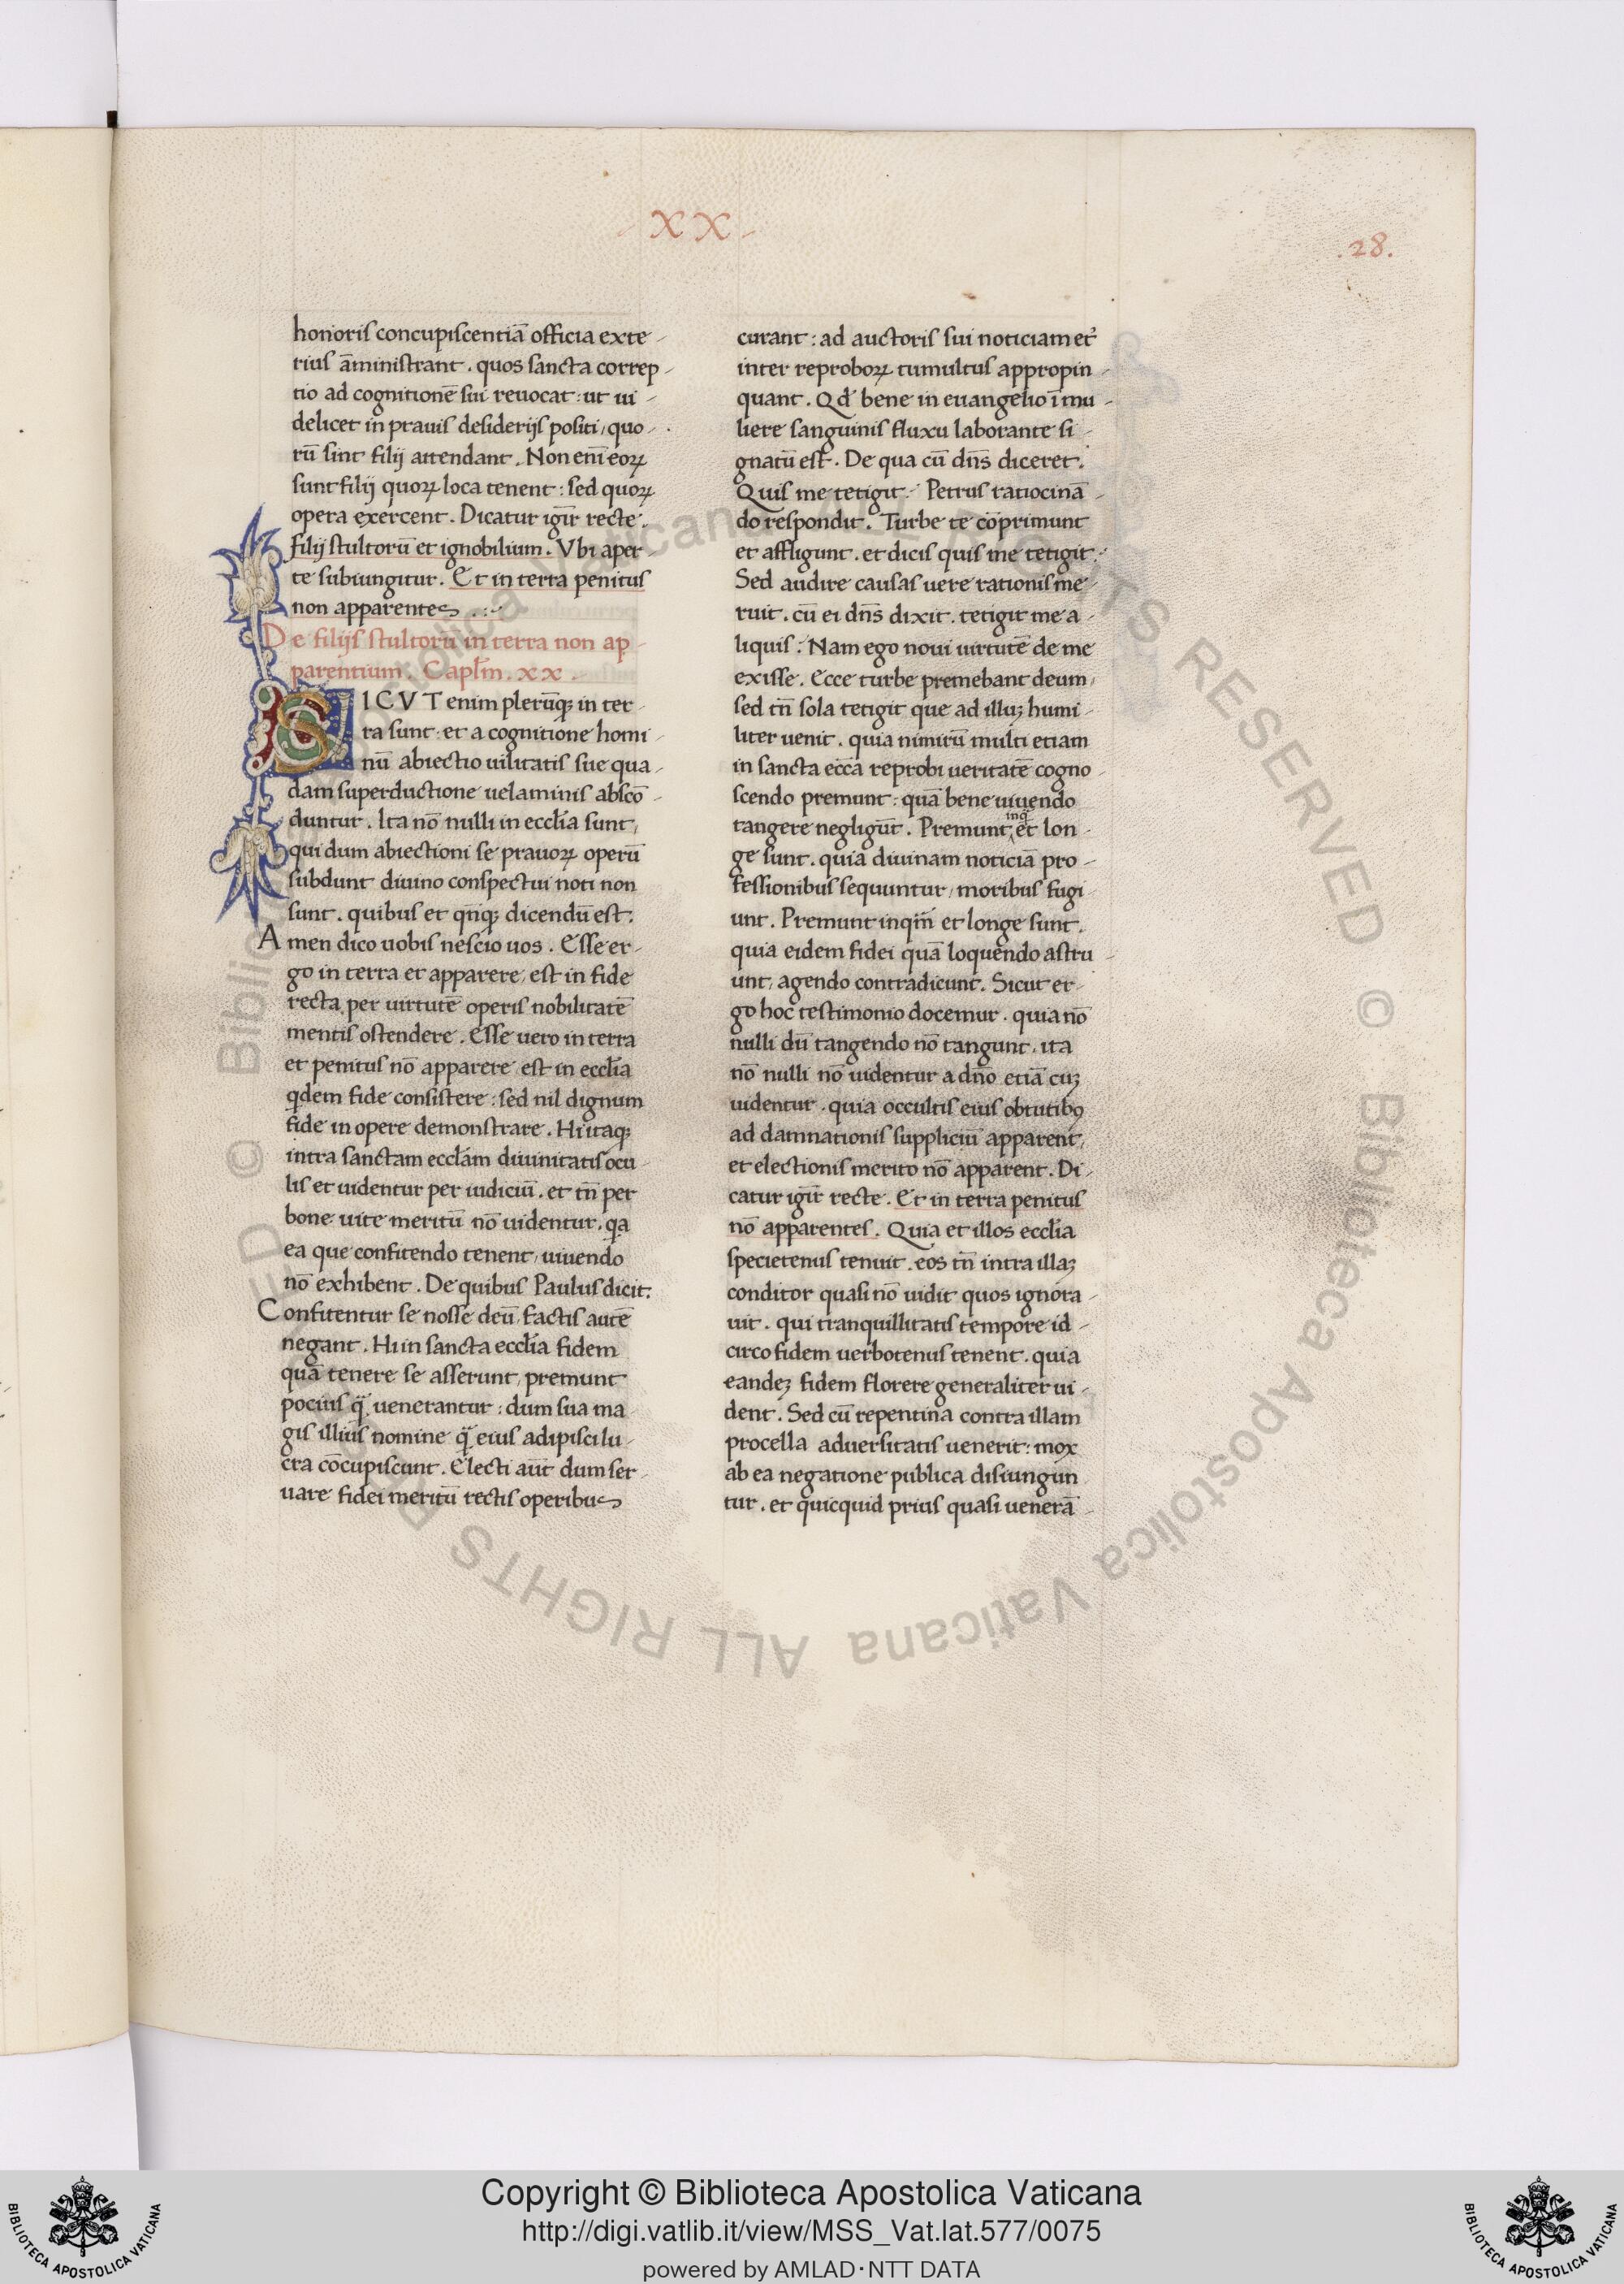 XX
.28.
honoris concupiscentiā officia exte-
rius āministrant. quos sancta correp-
tio ad cognitionē sui revocat: ut ui-
delicet in pravis desiderijs positi, quo-
rū sint filij attendant. Non enī eoꝝ
sunt filij quoꝝ loca tenent: sed quoꝝ
opera exercent. Dicatur igr̄ recte.
filij stultorū et ignobilium. Vbi aper-
te subiungitur. Et in terra penitus
non apparentes.
De filijs stultorū in terra non ap-
parentium. Capl̄m. xx.
SICVT enim plerūqꝫ in ter-
ra sunt: et a cognitione homi-
nū abiectio uilitatis sue qua-
dam superductione uelaminis abscō-
duntur. Ita nō nulli in eccl̄ia sunt,
qui dum abiectioni se prauoꝝ operū
subdunt diuino conspectui noti non
sunt. quibus et qn̄qꝫ dicendū est.
Amen dico uobis nescio uos. Esse er-
go in terra et apparere, est in fide
recta per uirtutē operis nobilitatē
mentis ostendere. Esse uero in terra
et penitus nō apparere est in eccl̄ia
qdem fide consistere: sed nil dignum
fide in opere demonstrare. Hi itaqꝫ
intra sanctam eccl̄am diuinitatis ocu-
lis et uidentur per iudiciū. et tn̄ per
bone uite meritū nō uidentur. qa
ea que confitendo tenent, uiuendo
nō exhibent. De quibus Paulus dicit.
Confitentur se nosse deū, factis autē
negant. Hi in sancta eccl̄ia fidem
quā tenere se asserunt, premunt
pocius q̄ uenerantur: dum sua ma-
gis illius nomine q̄ eius adipisci lu-
cra cōcupiscunt. Electi aūt dum ser-
uare fidei meritū rectis operibus
curant: ad auctoris sui noticiam et
inter reproboꝝ tumultus appropin-
quant. Qd̄ bene in euangelio ī mu-
liere sanguinis fluxu laborante si-
gnatū est. De qua cū dn̄s diceret.
Quis me tetigit. Petrus ratiocinā-
do respondit. Turbe te cōprimunt
et affligunt. et dicis quis me tetigit.
Sed audire causas uere rationis me-
ruit. cū ei dn̄s dixit. tetigit me a-
liquis. Nam ego noui uirtutē de me
exisse. Ecce turbe premebant deum,
sed tn̄ sola tetigit que ad illuꝫ humi-
liter uenit. quia nimirū multi etiam
in sancta ecc̄a reprobi ueritatē cogno-
scendo premunt: quā bene uiuendo
tangere negligūt. Premunt inq̄ et lon-
ge sunt. quia diuinam noticiā pro-
fessionibus sequuntur, moribus fugi-
unt. Premunt inqm̄ et longe sunt.
quia eidem fidei quā loquendo astru-
unt, agendo contradicunt. Sicut er-
go hoc testimonio docemur. quia nō
nulli dū tangendo nō tangunt, ita
nō nulli nō uidentur a dn̄o etiā cuꝫ
uidentur. quia occultis eius obtutibꝰ
ad damnationis suppliciū apparent,
et electionis merito nō apparent. Di-
catur igr̄ recte. Et in terra penitus
nō apparentes. Quia et illos eccl̄ia
specietenus tenuit. eos tn̄ intra illaꝫ
conditor quasi nō uidit quos ignora-
uit. qui tranquillitatis tempore id-
circo fidem uerbotenus tenent. quia
eandeꝫ fidem florere generaliter ui-
dent. Sed cū repentina contra illam
procella aduersitatis uenerit: mox
ab ea negatione publica disiungun
tur. et quicquid prius quasi uenerā-
© Biblioteca Apostolica Vaticana ALL RIGHTS RESERVED
Copyright © Biblioteca Apostolica Vaticana
http://digi.vatlib.it/view/MSS_Vat.lat.577/0075
powered by AMLAD·NTT DATA
BIBLIOTECA APOSTOLICA VATICANA
BIBLIOTECA APOSTOLICA VATICANA